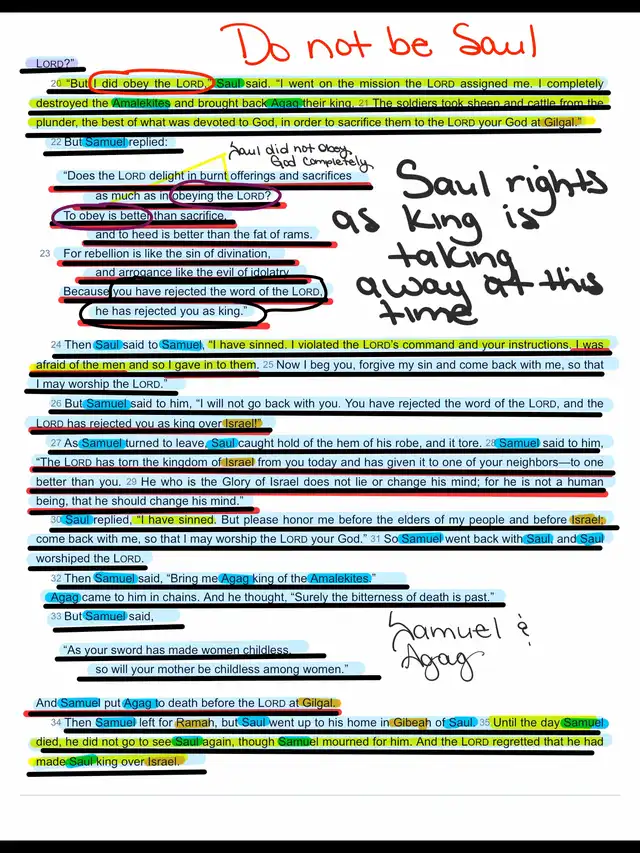 Do not be Saul
LORD?”
20 “But I did obey the LORD,” Saul said. “I went on the mission the LORD assigned me. I completely
destroyed the Amalekites and brought back Agag their king. 21 The soldiers took sheep and cattle from the
plunder, the best of what was devoted to God, in order to sacrifice them to the LORD your God at Gilgal.”
22 But Samuel replied:
Saul did not obey
God completely.
“Does the LORD delight in burnt offerings and sacrifices
as much as in obeying the LORD?
To obey is better than sacrifice,
and to heed is better than the fat of rams.
23 For rebellion is like the sin of divination,
and arrogance like the evil of idolatry.
Because you have rejected the word of the LORD,
he has rejected you as king.”
Saul rights
as king is
taking
away at this
time
24 Then Saul said to Samuel, “I have sinned. I violated the LORD’s command and your instructions. I was
afraid of the men and so I gave in to them. 25 Now I beg you, forgive my sin and come back with me, so that
I may worship the LORD.”
26 But Samuel said to him, “I will not go back with you. You have rejected the word of the LORD, and the
LORD has rejected you as king over Israel!”
27 As Samuel turned to leave, Saul caught hold of the hem of his robe, and it tore. 28 Samuel said to him,
“The LORD has torn the kingdom of Israel from you today and has given it to one of your neighbors—to one
better than you. 29 He who is the Glory of Israel does not lie or change his mind; for he is not a human
being, that he should change his mind.”
30 Saul replied, “I have sinned. But please honor me before the elders of my people and before Israel;
come back with me, so that I may worship the LORD your God.” 31 So Samuel went back with Saul, and Saul
worshiped the LORD.
32 Then Samuel said, “Bring me Agag king of the Amalekites.”
Agag came to him in chains. And he thought, “Surely the bitterness of death is past.”
33 But Samuel said,
“As your sword has made women childless,
so will your mother be childless among women.”
Samuel &
Agag
And Samuel put Agag to death before the LORD at Gilgal.
34 Then Samuel left for Ramah, but Saul went up to his home in Gibeah of Saul. 35 Until the day Samuel
died, he did not go to see Saul again, though Samuel mourned for him. And the LORD regretted that he had
made Saul king over Israel.